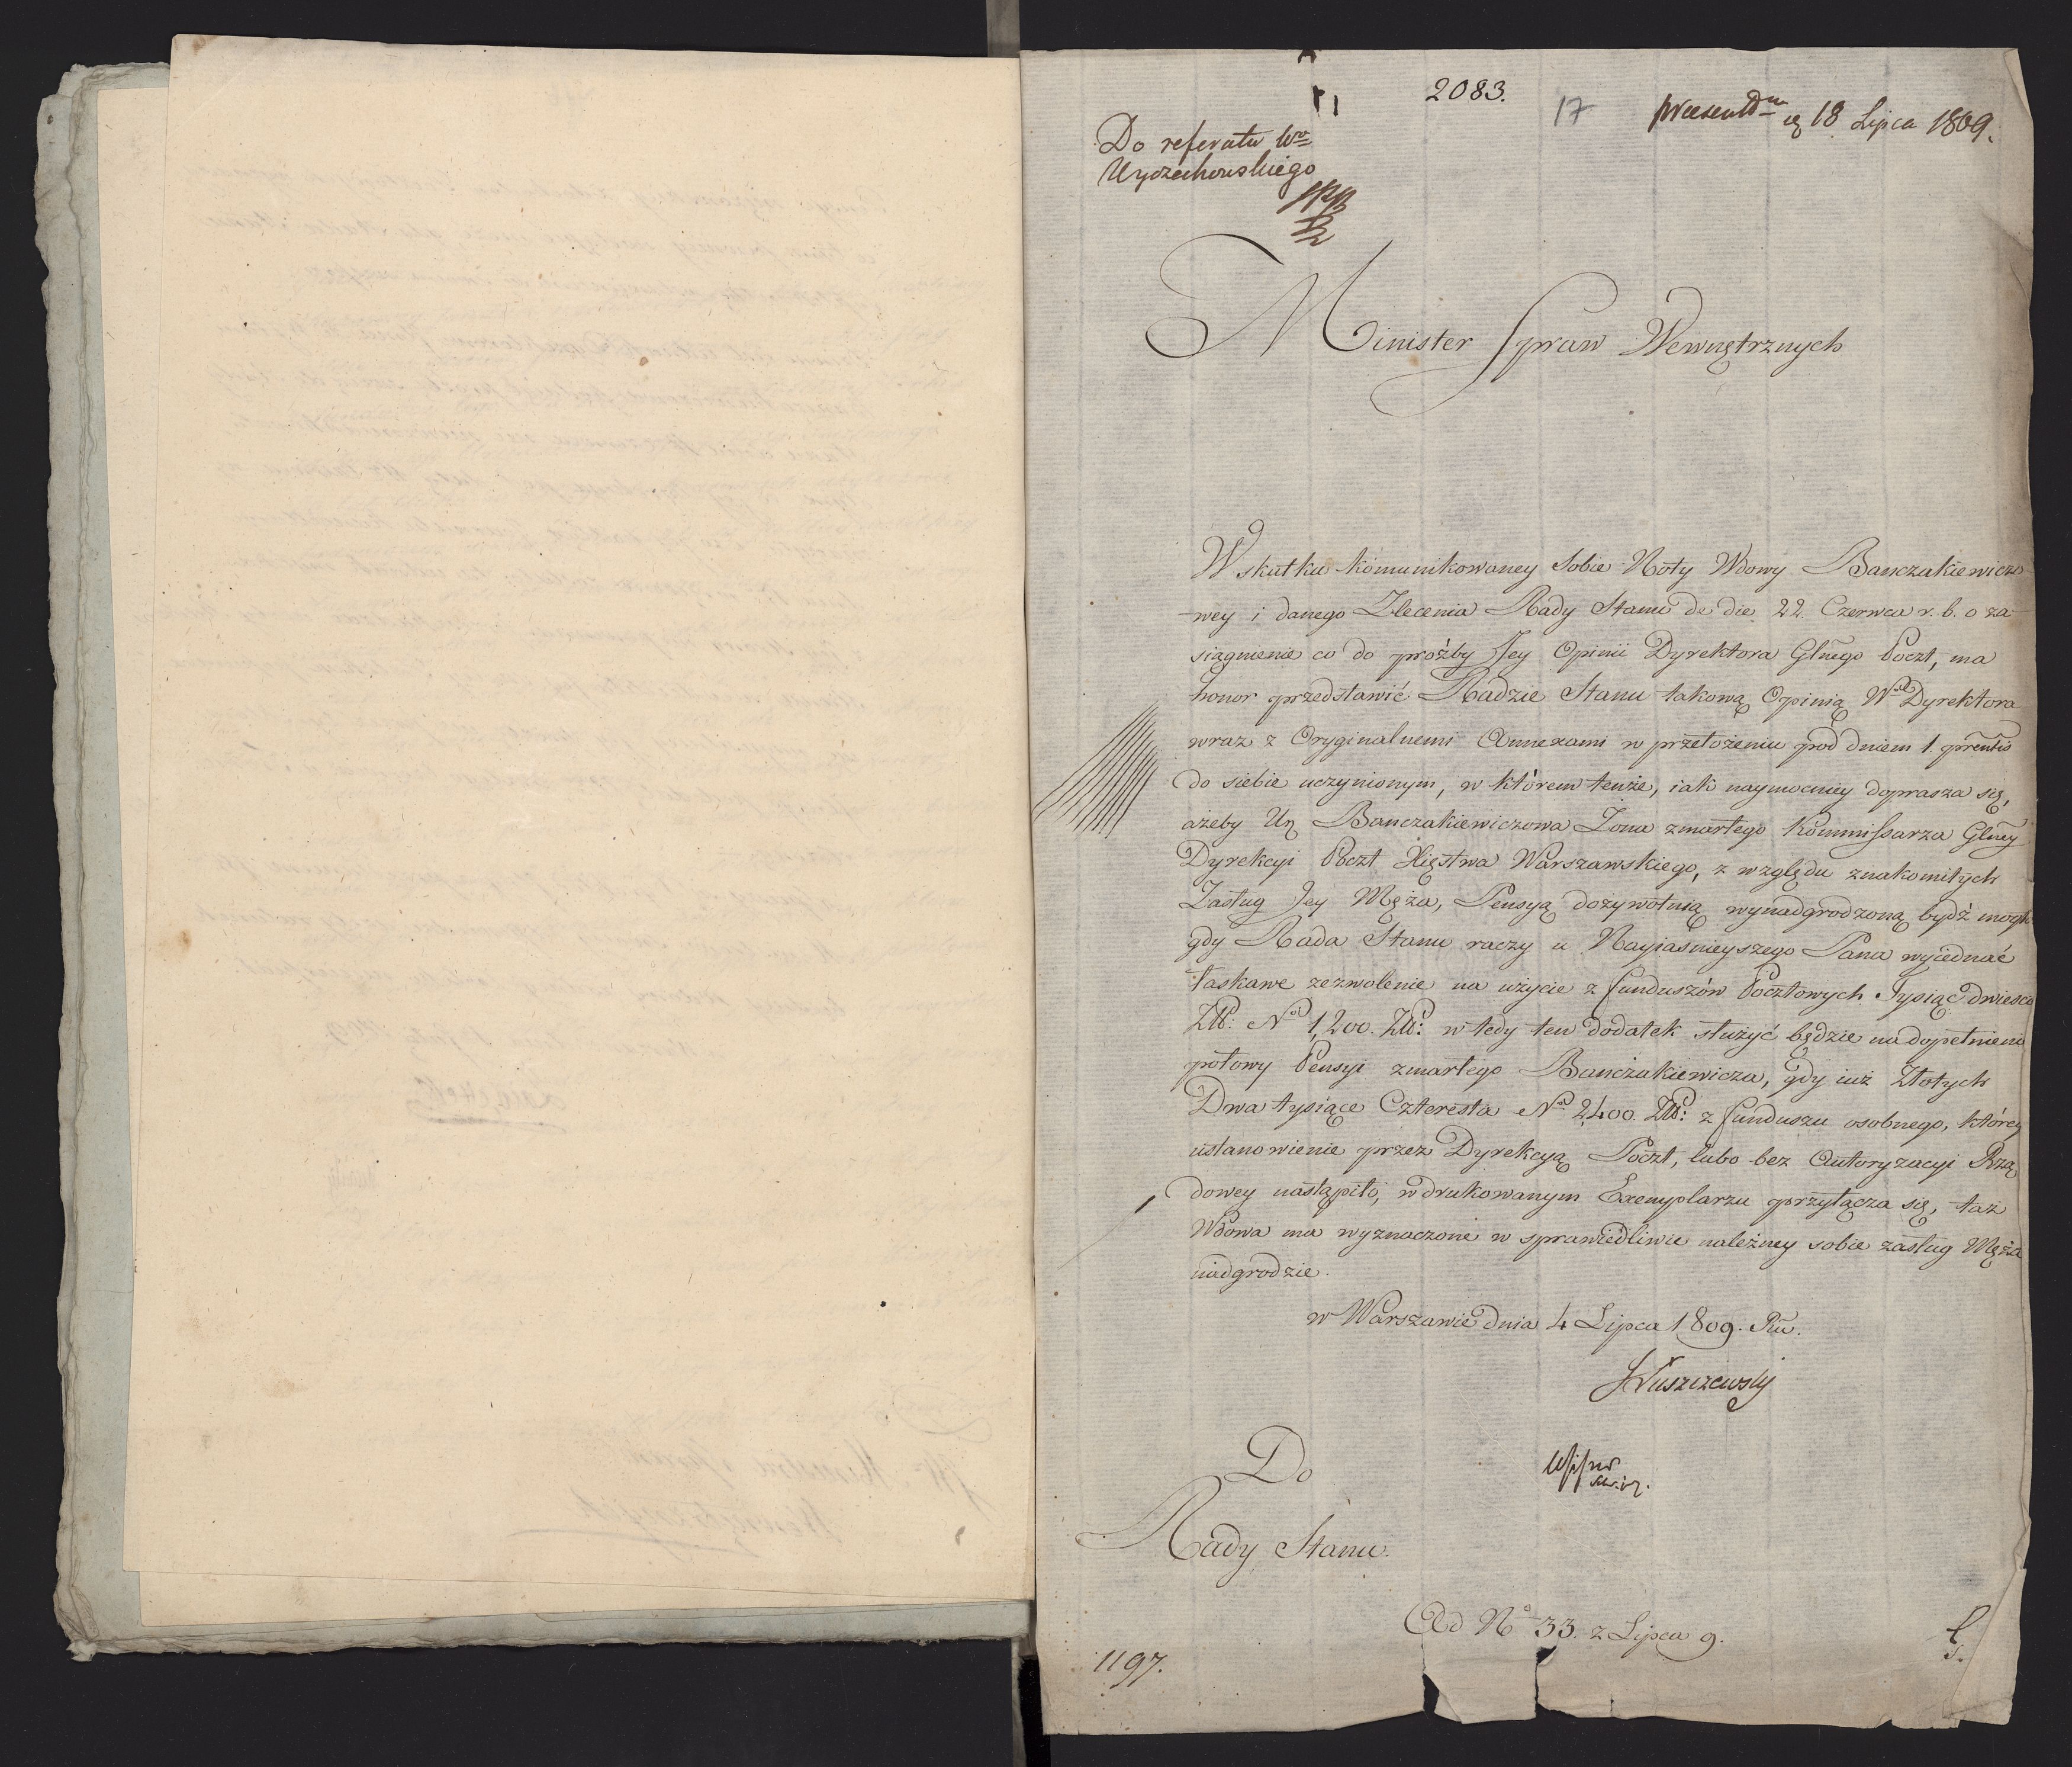 2083.
17
praesentm d 18 Lipca 1809.
Do referatu Wo
Wyczechowskiego
Minister Spraw Wewnętrznych
W skutku kommunikowaney Sobie Noty Wdowy Banczakiewiczo-
-wey i danego Zlecenia Rady Stanu de die 22. Czerwca r. b. o za-
siągnienie co do proźby Jey Opinii Dyrektora Glnego Poczt, ma
honor przedstawić Radzie Stanu takową Opinią Wgo Dyrektora
wraz z Oryginalnemi Annexami w przełożeniu pod dniem 1. prentis
do siebie uczynionym, w którem tenże, iak naymocniey doprasza się,
ażeby Ur Banczakiewiczowa Zona zmarłego Kommissarza Glney
Dyrekcyi Poczt Xięstwa Warszawskiego, z względu znakomitych
Zasług Jey Męża, Pensyą dożywotnią wynadgrodzoną bydź mogła
gdy Rada Stanu raczy u Nayiaśnieyszego Pana wyiednać
łaskawe zezwolenie na użycie z funduszów Pocztowych Tysiąc dwieście
Złł: No 1,200. Złł: wtedy ten dodatek służyć będzie na dopełnienie
połowy Pensyi zmarłego Banczakiewicza, gdy iuż Złotych
Dwa tysiące Czterysta No 2,400 Złł: z funduszu osobnego, którey
ustanowienie przez Dyrekcyą Poczt, lubo bez Autoryzacyi Rzą
dowey nastąpiło, w drukowanym Exemplarzu przyłącza się, taż
Wdowa ma wyznaczone w sprawiedliwie należney sobie zasług Męża
nadgrodzie.
w Warszawie dnia 4 Lipca 1809. Ru.
JŁuszczewski
Do
Rady Stanu.
Ad No 33. z Lipca 9.
1197.